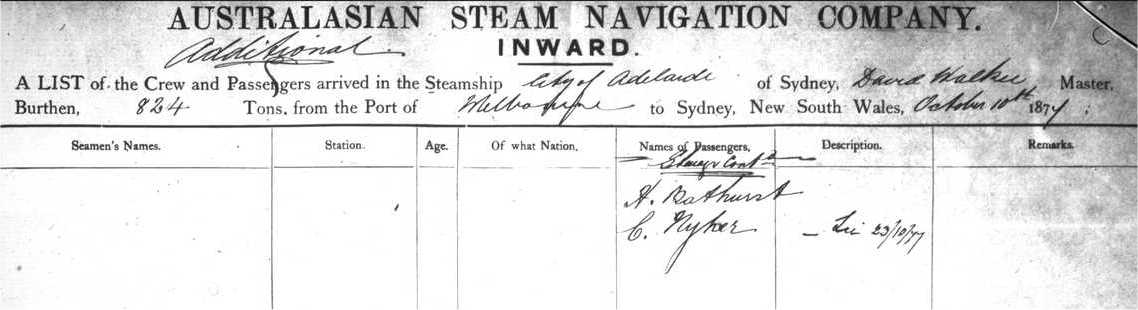 AUSTRALASIAN STEAM NAVIGATION COMPANY.
Additional
INWARD.
A LIST of the Crew and Passengers arrived in the Steamship City of Adelaide of Sydney, David Walker Master,
Burthen, 824 Tons, from the Port of Melbourne to Sydney, New South Wales, October 10th 1877.
Seamen's Names. Station. Age. Of what Nation. Names of Passengers, Description. Remarks.
Steerage Contd
A. Bathurst
C. Nyker 23/10/77